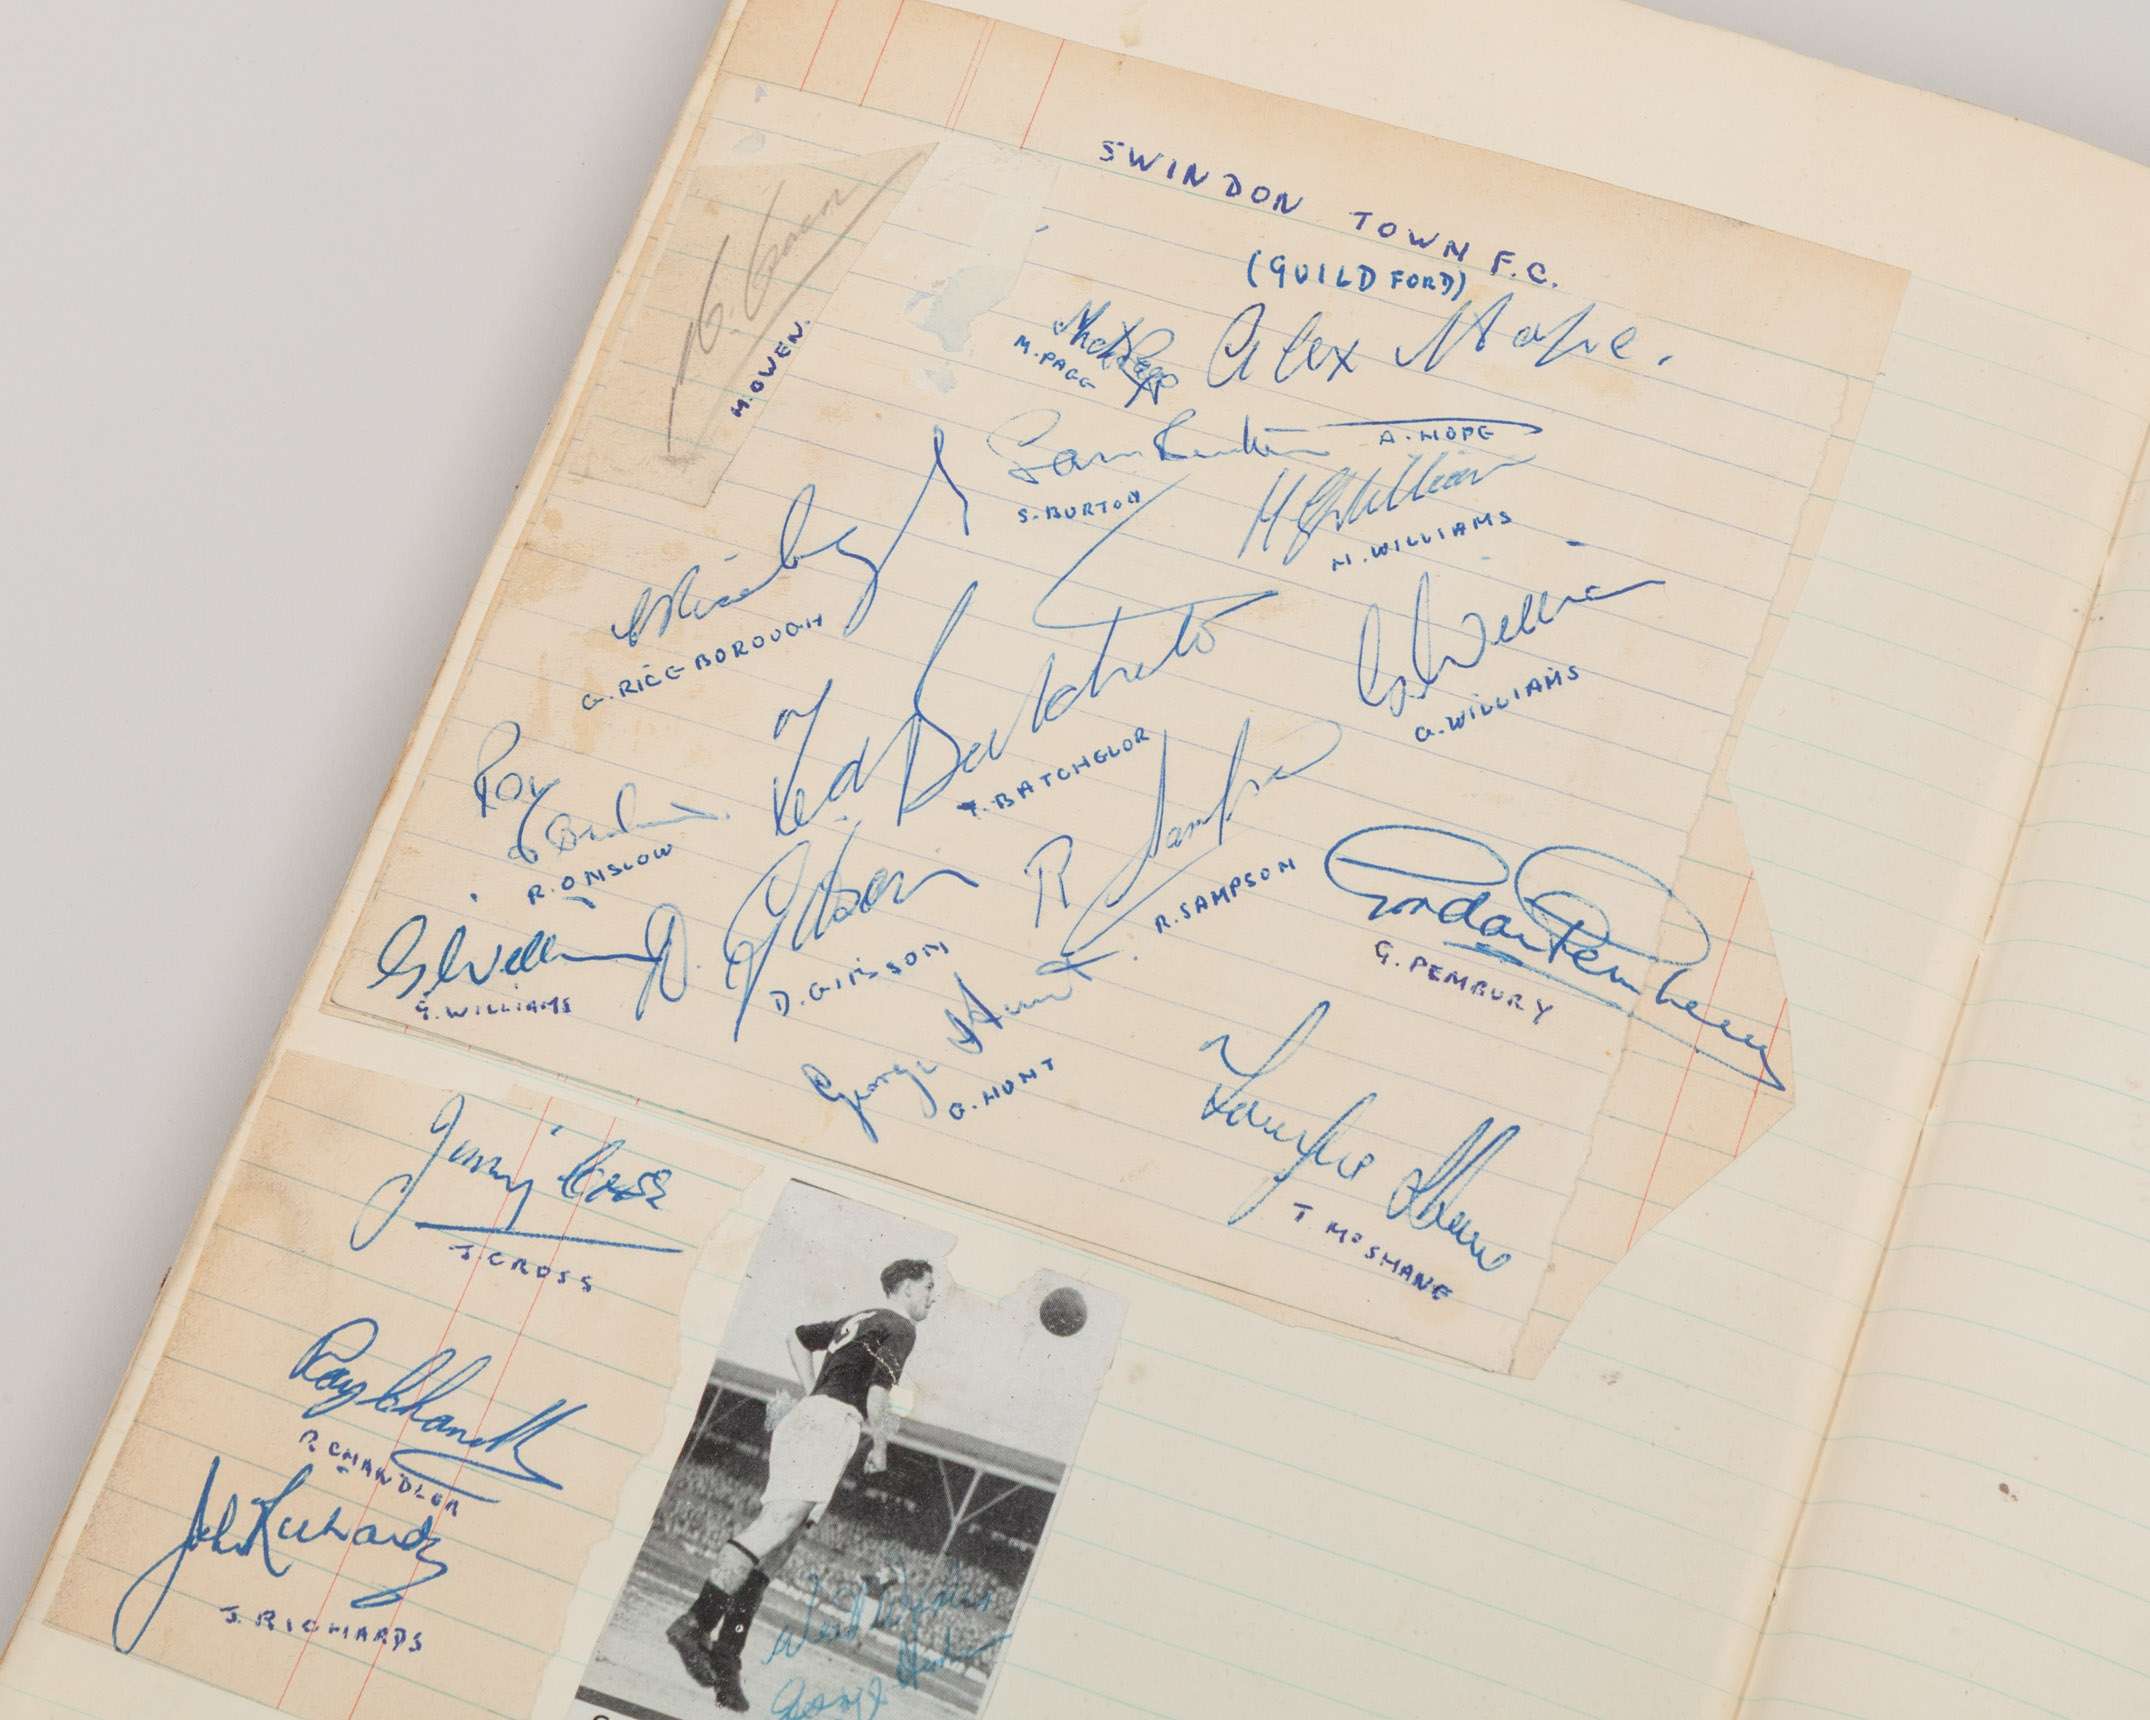 SWINDON TOWN F.C.
(GUILDFORD)
M. OWEN.
M. PAGE
Alex Hope.
A. HOPE
Sam Burton
S. BURTON
H G Williams
H. WILLIAMS
G. RICEBOROUGH
G. Williams
G. WILLIAMS
Ted Batchelor
T. BATCHELOR
Roy Onslow
R. ONSLOW
R Sampson
R. SAMPSON
G Williams
G. WILLIAMS
D. Gibson
D. GIBSON
Gordon Pembery
G. PEMBURY
George Hunt.
G. HUNT
T. McSHANE
Jimmy Cross
J. CROSS
Ray Chandler
R. CHANDLER
John Richards
J. RICHARDS